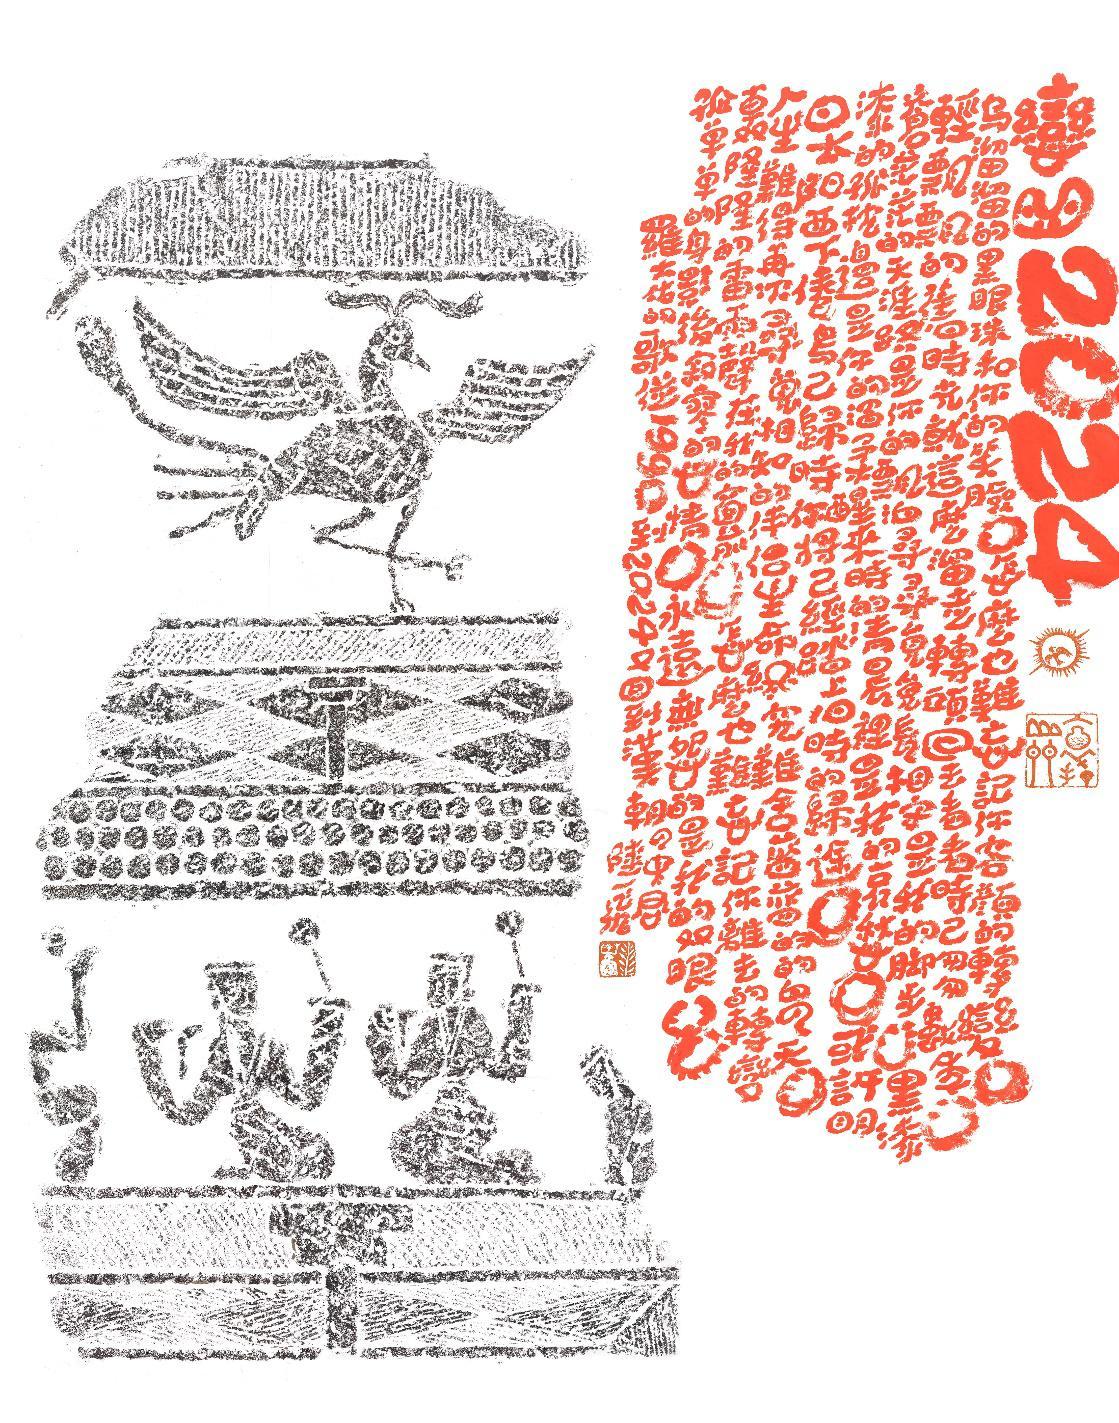 戀曲2024
烏溜溜的黑眼珠和你的笑臉怎麼也難忘記你容顏的轉變
輕飄飄的舊時光就這麼溜走轉頭回去看看時已匆匆數年
蒼茫茫的天涯路是你的風泊尋尋覓覓長相守是我的脚步黑漆
漆的孤枕邊是你的溫柔醒來時的清晨裡是我的哀愁或許明
日太阳西下倦鳥已歸時你將已經踏上旧時的歸途
人生難得再次尋覓相知的伴侶生命終究難舍藍藍的天
轟隆隆的雷雨聲在我的窗前怎麼也難忘記你離去的轉變
孤單單的身影後寂寥的心情永遠無怨的是我的双眼
羅大佑的歌從1990至2024又回到